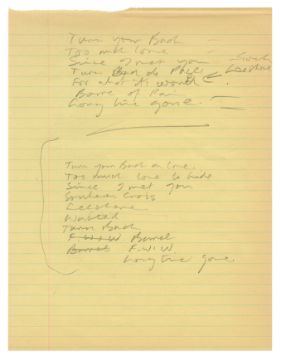 Turn your Back
Too much love
Since I met you
Turn Back do
For what it's worth
Barrel of Pain
Long time gone.
Turn your Back on love.
Too much love to hide
Since I met you
Southern Cross
Wasted
Turn Back
F.W.I.W Barrel
Barrel F.W.I.W
Long time gone